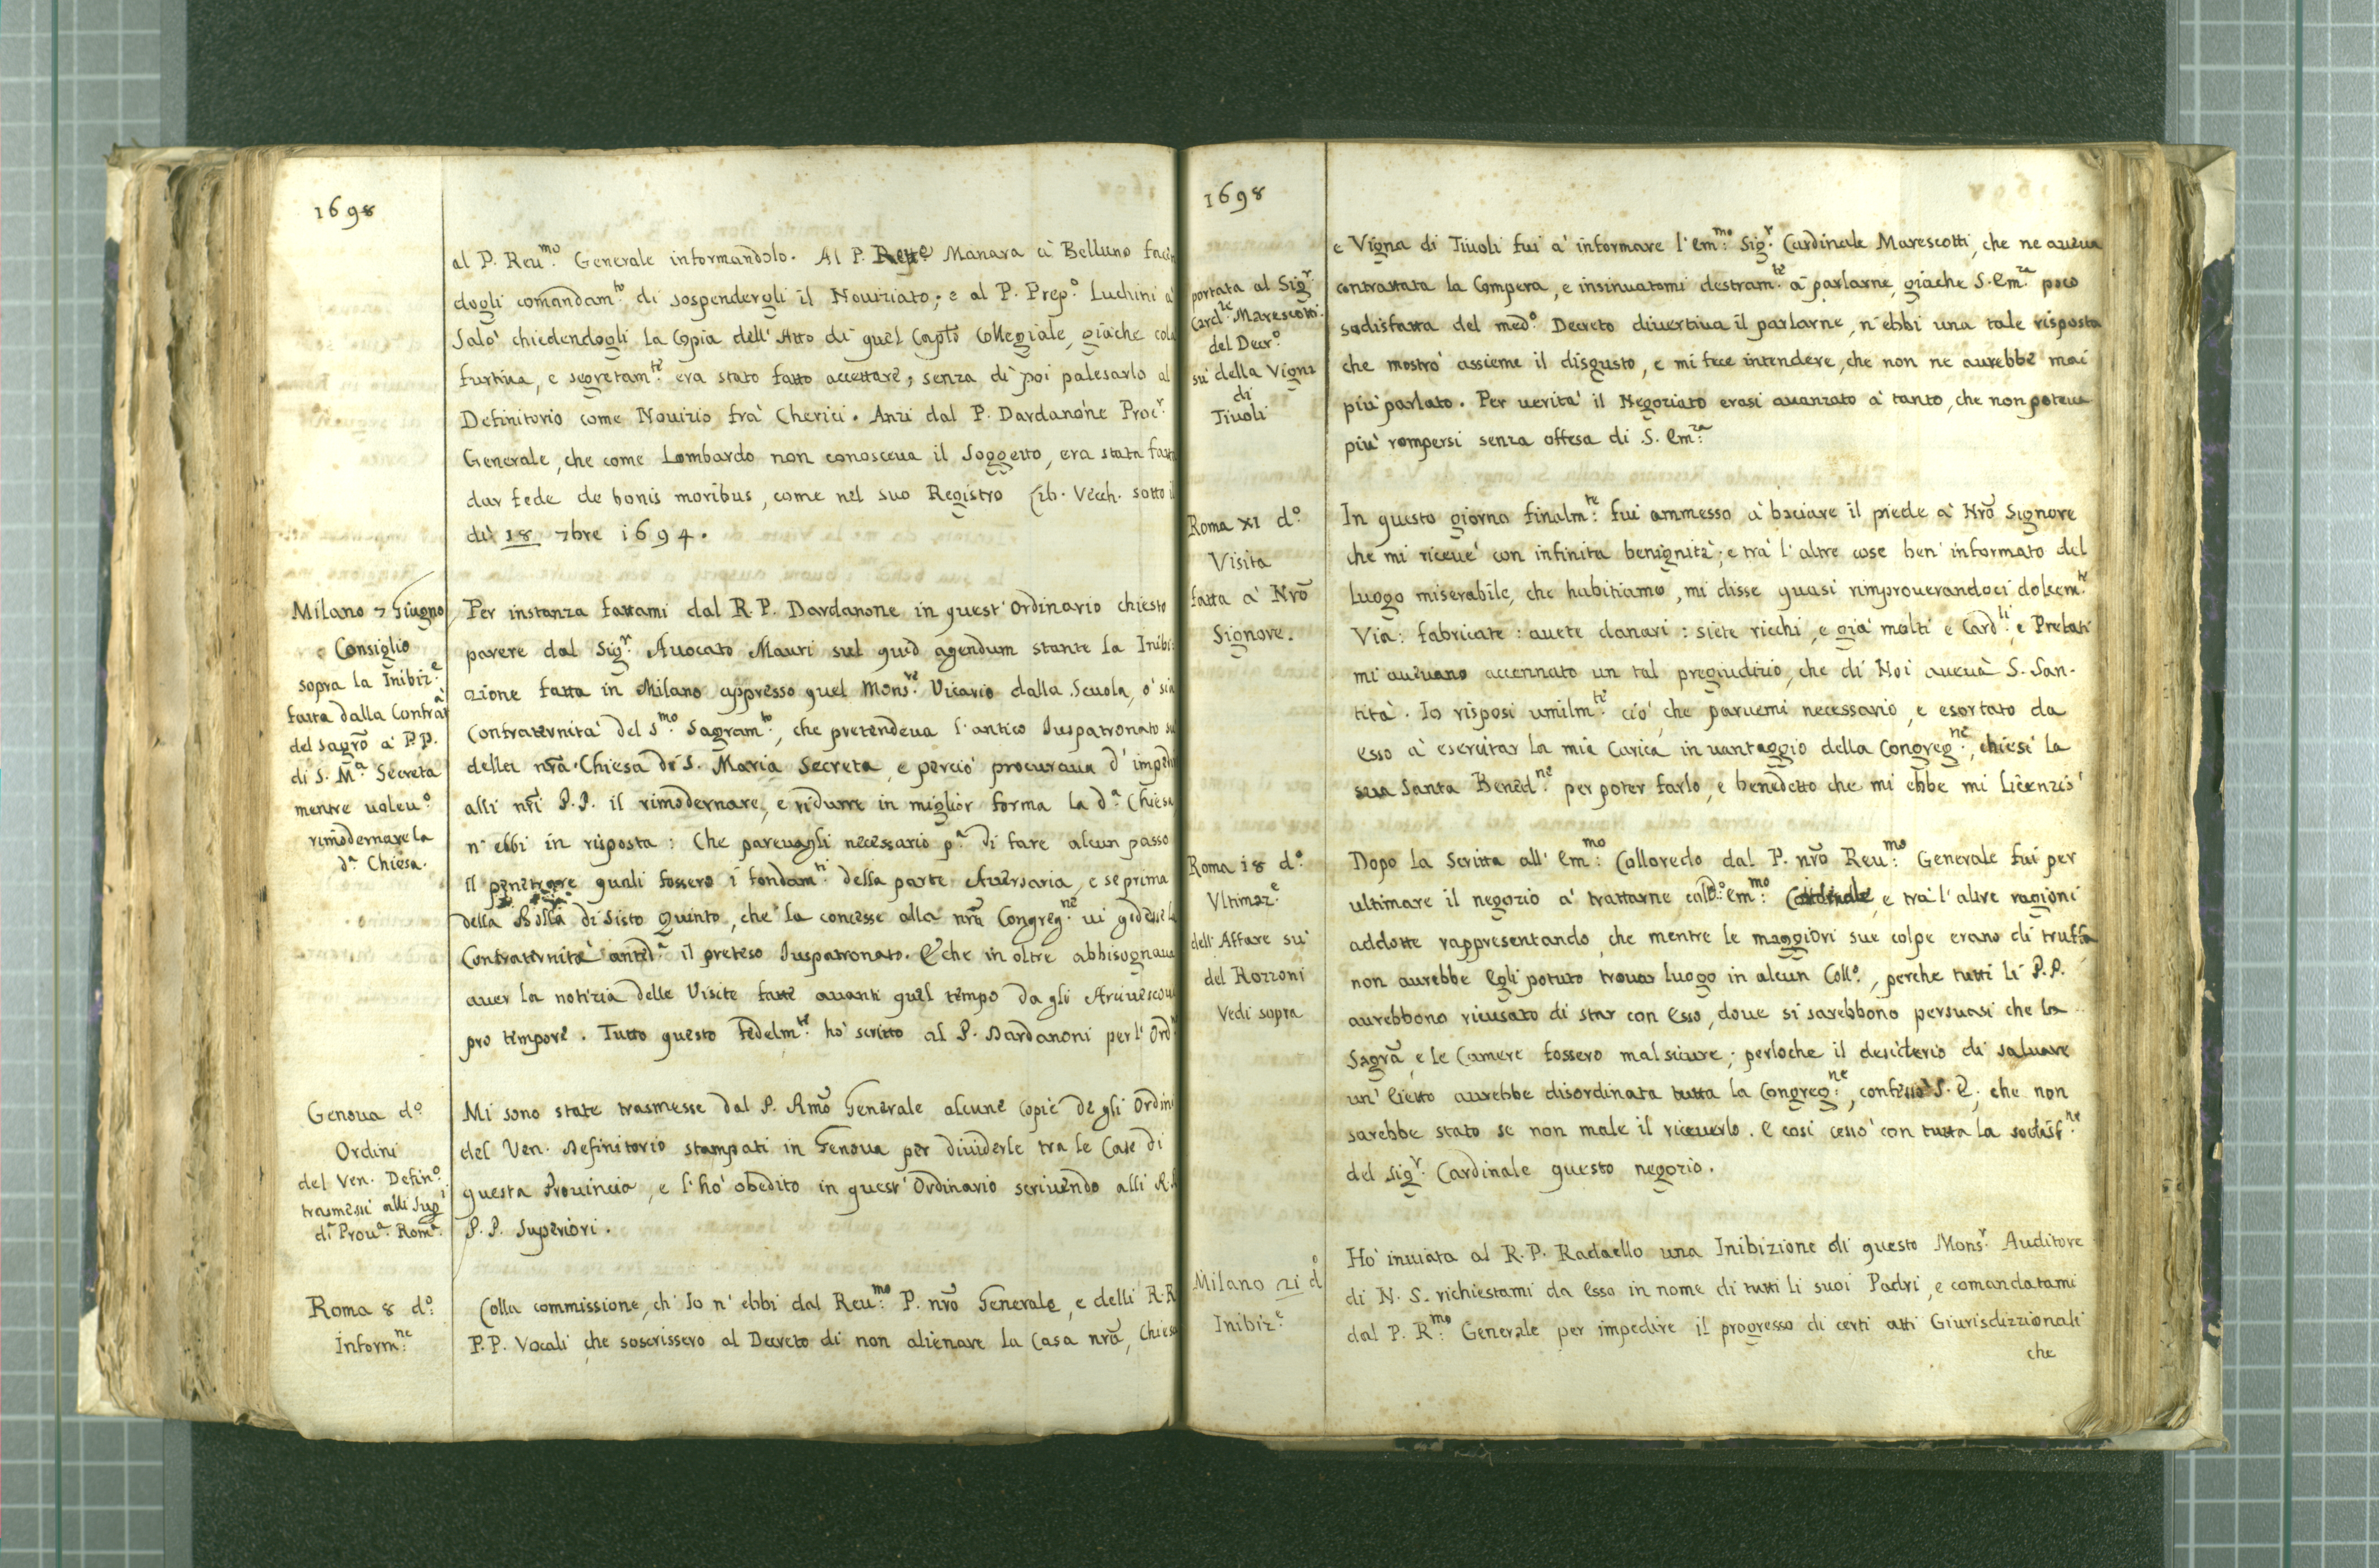 1698
al P. Reu.mo Generale informandolo. Al P. Manara à Belluno facen
dogli comandam.to di sospendergli il Nouiziato; e al P. Prep.o Luchini à
Salò chiedendogli la Copia dell' Atto di quel Capto Collegiale, giache
furtiua, e segretam.te era stato fatto accettare, senza di poi palesarlo al
Definitorio come Nouizio frà Cherici. Anzi dal P. Dardanone Proc.r
Generale, che come Lombardo non conosceua il Soggetto, era stata fatta
dar fede de bonis moribus, come nel suo Registro Lib. Vecch. sotto il
dì 18 7bre 1694.
Milano 7 Giugno
Consiglio
sopra la Inibiz.e
fatta dalla Contratà
del Sagrõ à P.P.
di S. M.a Secreta
mentre uoleu.o
rimodernare la
d.a Chiesa.
Per instanza fattami dal R. P. Dardanone in quest' Ordinario chiesto
parere dal Sig.r Auocato Mauri sul quid agendum stante la Inibi:
zione fatta in Milano appresso quel Mons.re Vicario dalla Scuola, ò sia
Confraternità del S.mo Sagram.to, che pretendeua l'antico Iuspatronato su
della nrã Chiesa di S. Maria Secreta, e perciò procuraua d' impedir
alli nri P.P. il rimodernare, e ridurre in miglior forma la d.a Chiesa
n' ebbi in risposta: Che pareuagli necessario p.a di fare alcun passo
Il penetrare quali fossero i fondam.ti della parte Auersaria, e se prima
della Bolla di Sisto Quinto, che la concesse alla nrã Congreg.ne ui godesse la
Confraternità anted.a il preteso Iuspatronato. E che in oltre abbisognaua
auer la notizia delle Visite fatte auanti quel tempo da gli Arciuescoui
pro tempore. Tutto questo fedelm.te hò scritto al P. Dardanoni per l' Ord.
Genoua d.o
Ordini
del Ven. Defin.o
trasmessi alli Sup.i
di Prou.a Rom.a
Mi sono state trasmesse dal P. Rmõ Generale alcune Copie degli Ordini
del Ven. Definitorio stampati in Genoua per diuiderle tra le Case di
questa Prouincia, e l' hò obedito in quest' Ordinario scriuendo alli R.R.
P.P. Superiori.
Roma 8 d.o
Inform.ne
Colla commissione, ch' Io n' ebbi dal Reu.mo P. nrõ Generale, e delli R.R.
P.P. Vocali che soscrissero al Decreto di non alienare la Casa nrã, Chiesa
1698
portata al Sig.r
Card.le Marescotti
del Decr.o
sù della Vigna
di
Tiuoli
e Vigna di Tiuoli fui à informare l' Em.mo Sig.r Cardinale Marescotti, che ne aueua
contrattata la Compera, e insinuatomi destram.te à parlarne, giache S. Em.za poco
sodisfatta del med.o Decreto diuertiua il parlarne, n' ebbi una tale risposta
che mostrò assieme il disgusto, e mi fece intendere, che non ne aurebbe mai
più parlato. Per uerità il Negoziato erasi auanzato à tanto, che non poteua
più rompersi senza offesa di S. Em.za
Roma XI d.o
Visita
fatta à Nrõ
Signore.
In questo giorno finalm.te fui ammesso à baciare il piede à Nrõ Signore
che mi riceuè con infinita benignità; e trà l' altre cose ben' informato del
luogo miserabile, che habitiamo, mi disse quasi rimprouerandoci dolcem.te
Via: fabricate: auete danari: siete ricchi, e già molti e Card.li e Prelati
mi aueuano accennato un tal pregiudizio, che di Noi aueuà S. San-
tità. Io risposi umilm.te ciò, che paruemi necessario, e esortato da
esso à esercitar la mia Carica in uantaggio della Congreg.ne, chiesi la
sua Santa Bened.ne per poter farlo, e benedetto che mi ebbe mi licenziò
Roma 18 d.o
Vltimaz.e
dell' Affare sù
del Rozzoni
Vedi sopra
Dopo la Scritta all' Em.mo Colloredo dal P. nrõ Reu.mo Generale fui per
ultimare il negozio à trattarne cold.o Em.mo Cardinale, e trà l' altre ragioni
addotte rappresentando, che mentre le maggiori sue colpe erano di truffa
non aurebbe Egli potuto trouar luogo in alcun Coll.o, perche tutti li P.P.
aurebbono ricusato di star con Esso, doue si sarebbono persuasi che la
Sagrã, e le Camere fossero mal sicure; perloche il desiderio di saluare
un' Eietto aurebbe disordinata tutta la Congreg.ne, confessò S. E. che non
sarebbe stato se non male il riceuerlo. E così cessò con tutta la sodisf.ne
del Sig.r Cardinale questo negozio.
Milano 21 d.o
Inibiz.e
Hò inuiata al R. P. Radaello una Inibizione di questo Mons.r Auditore
di N. S. richiestami da Esso in nome di tutti li suoi Padri, e comandatami
dal P. R.mo Generale per impedire il progresso di certi atti Giurisdizzionali
che